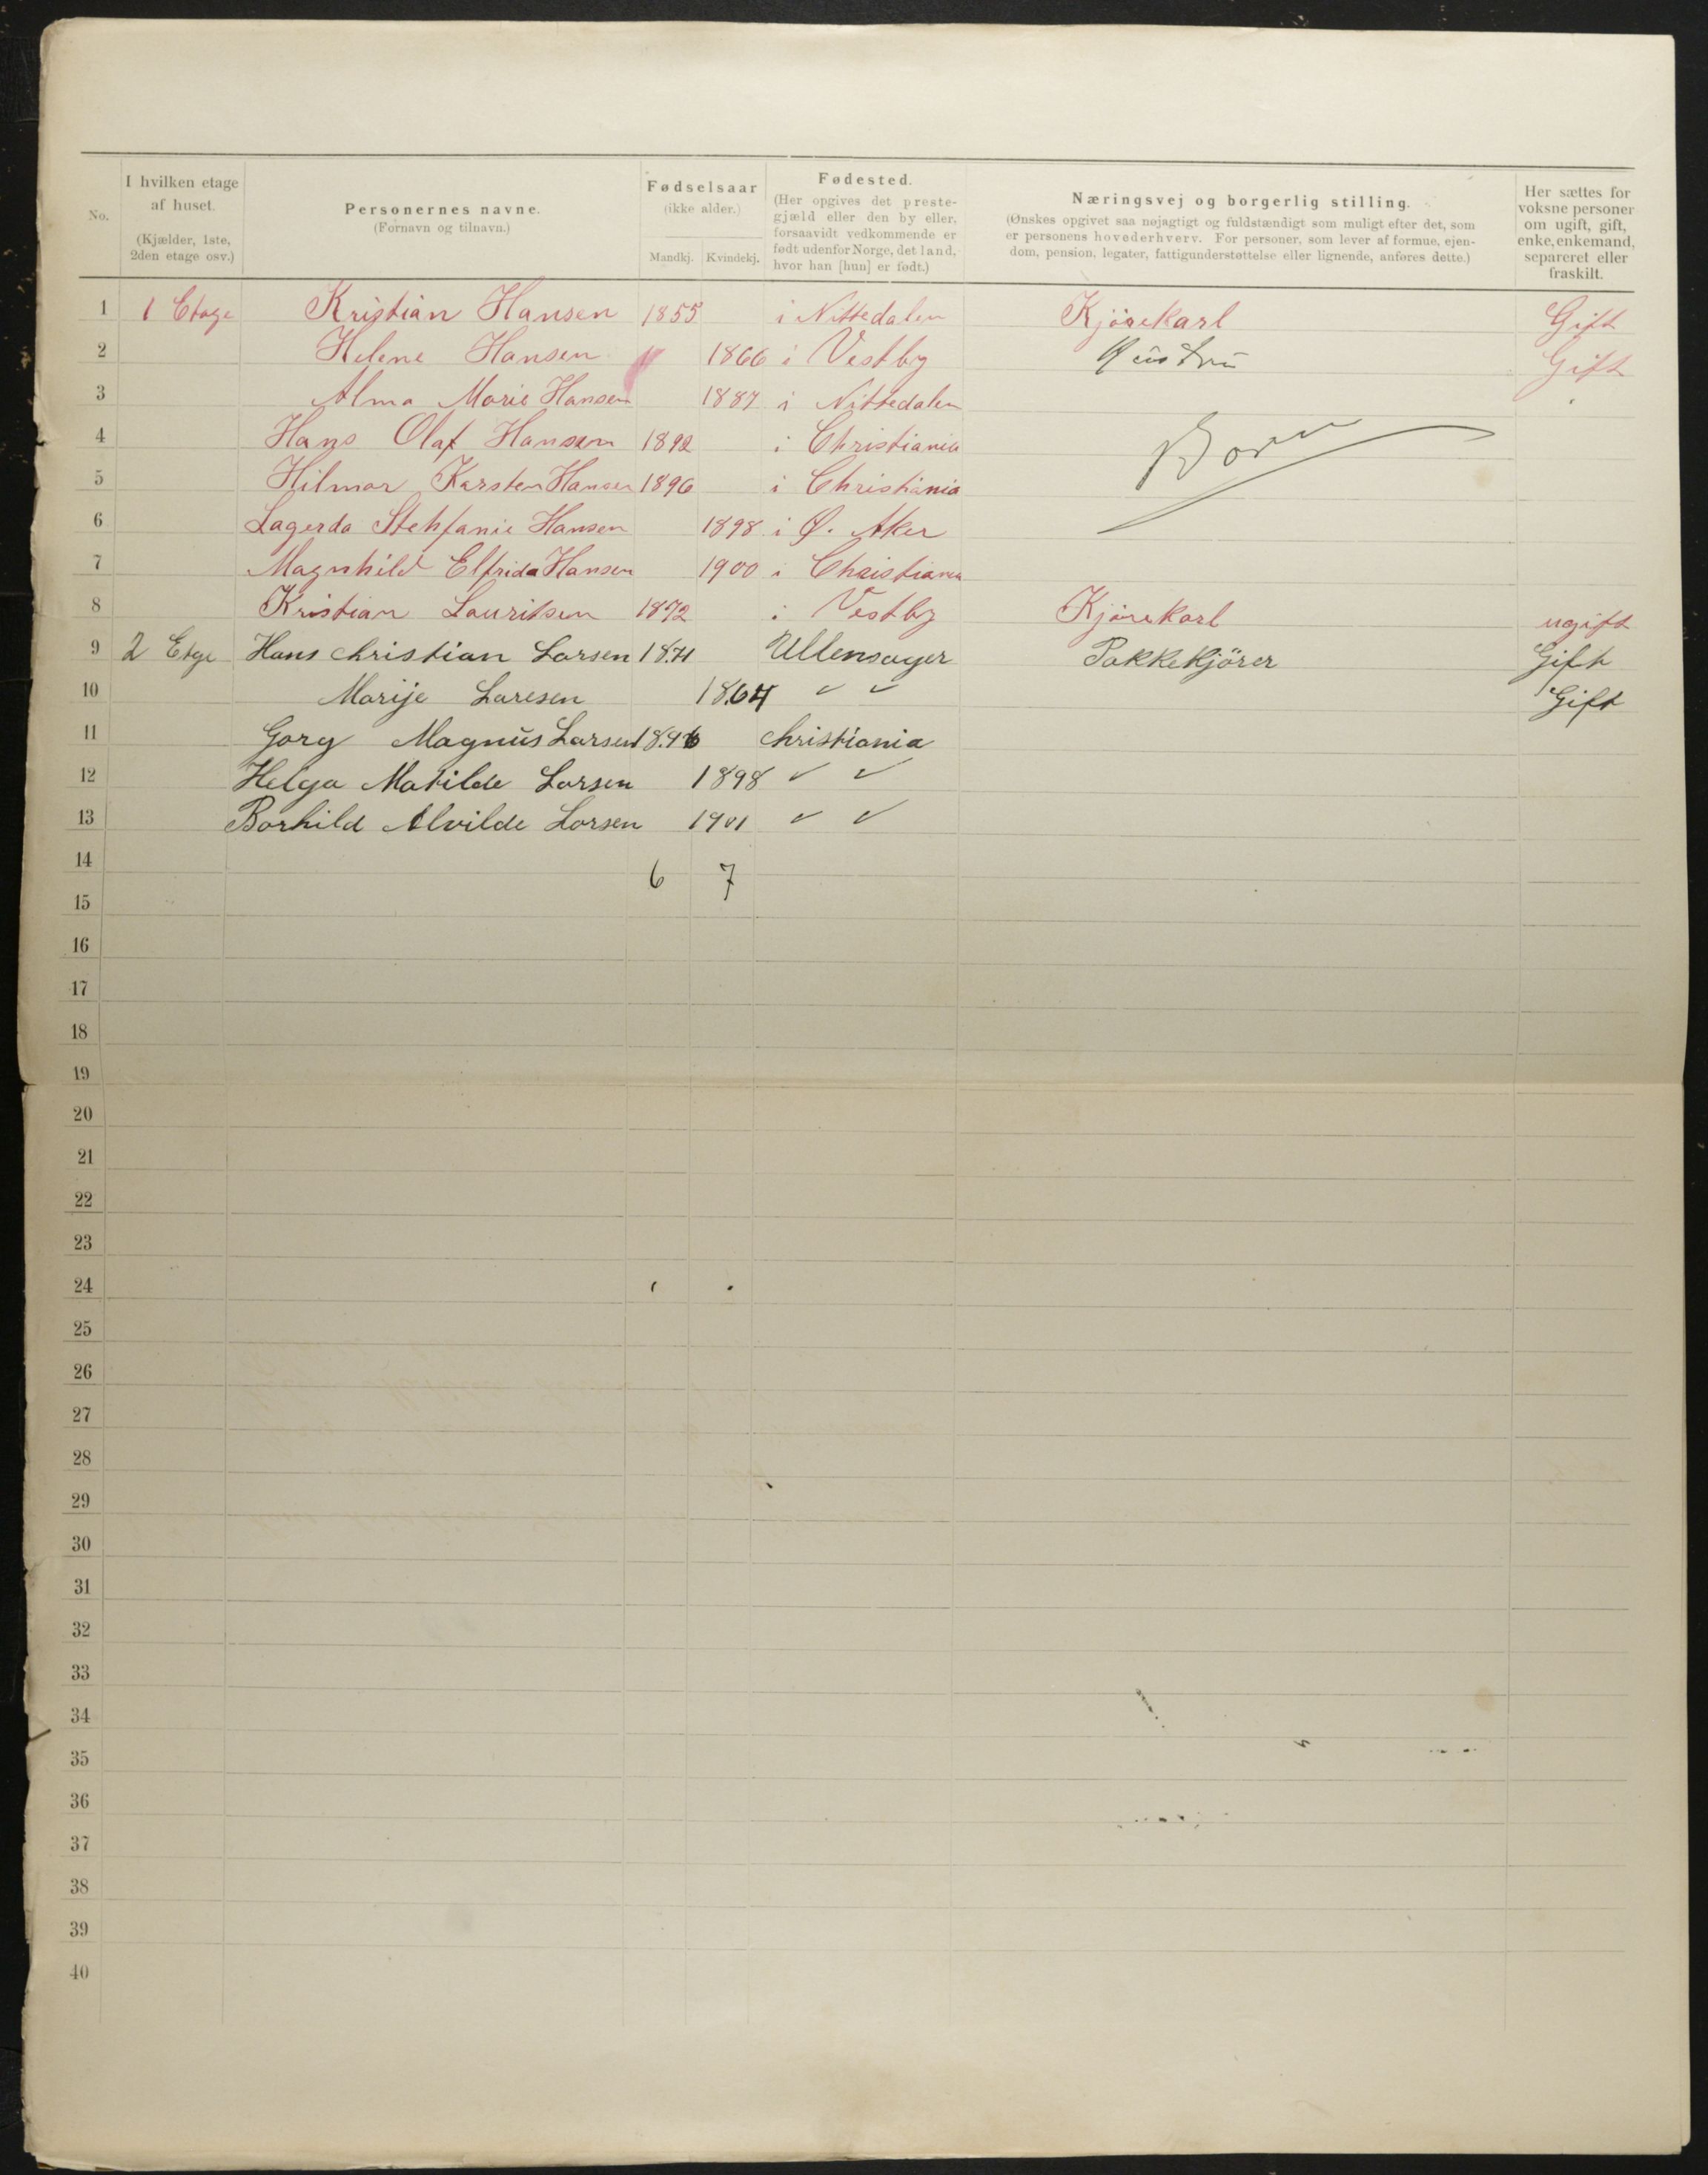 No.
I hvilken etage af huset. (Kjælder, 1ste, 2den etage osv.)
Personernes navne. (Fornavn og tilnavn.)
Fødselsaar (ikke alder.) Mandkj. Kvindekj.
Fødested. (Her opgives det prestegjæld eller den by eller, forsaavidt vedkommende er født udenfor Norge, det land, hvor han [hun] er født.)
Næringsvej og borgerlig stilling. (Ønskes opgivet saa nøjagtigt og fuldstændigt som muligt efter det, som er personens hovederhverv. For personer, som lever af formue, ejendom, pension, legater, fattigunderstøttelse eller lignende, anføres dette.)
Her sættes for voksne personer om ugift, gift, enke, enkemand, separeret eller fraskilt.
1 1 Etage Kristian Hansen 1855 i Nittedalen Kjørekarl Gift
2 Helene Hansen 1866 i Vestby Hustru Gift
3 Alma Marie Hansen 1887 i Nittedalen
4 Hans Olaf Hansen 1892 i Christiania Børn
5 Hilmar Karsten Hansen 1896 i Christiania
6 Lagerda Stehfanie Hansen 1898 i Ø. Aker
7 Magnhild Elfrida Hansen 1900 i Christiania
8 Kristian Lauritsen 1872 i Vestby Kjørekarl ugift
9 2 Etge Hans Christian Larsen 1871 Ullensager Pakkekjörer Gift
10 Marije Laresen 1864 " " Gift
11 Gorg Magnus Larsen Christiania
12 Helga Matilde Larsen 1898 " "
13 Borhild Alvilde Larsen 1901 " "
14 6 7
15
16
17
18
19
20
21
22
23
24
25
26
27
28
29
30
31
32
33
34
35
36
37
38
39
40